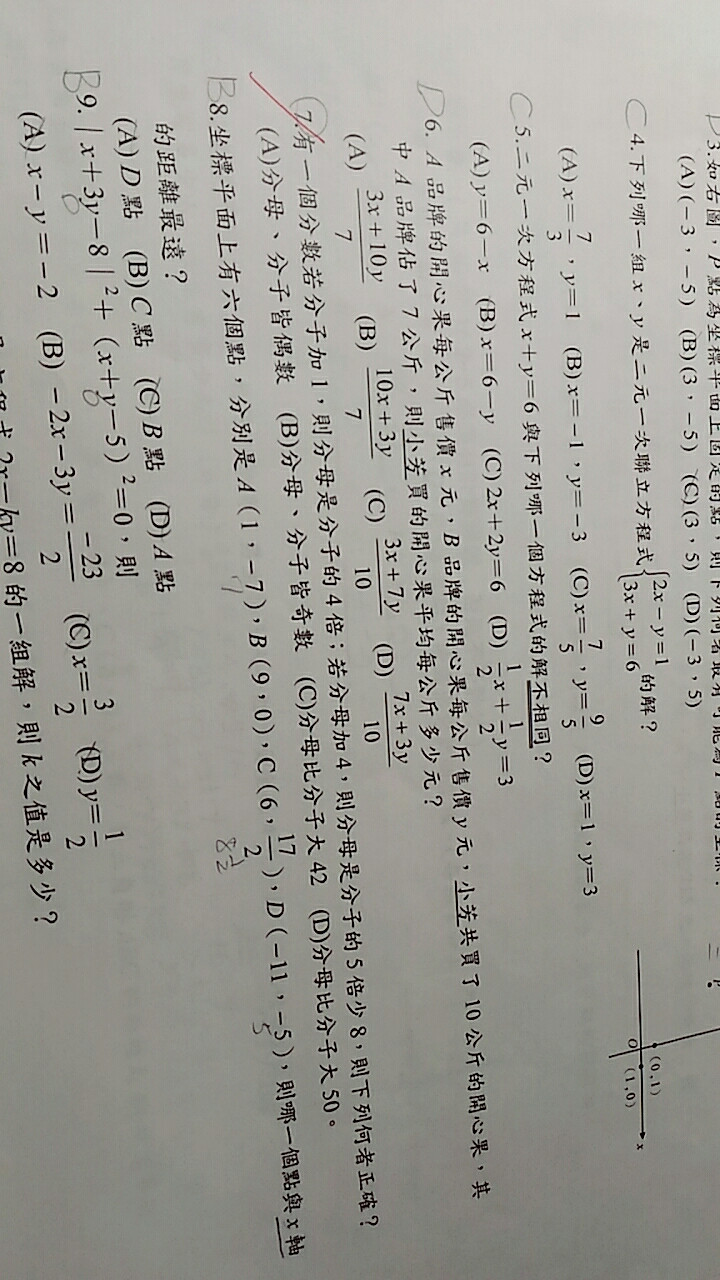 3.如右圖，P點為坐標平面上固定的點，則下列何者最有可能為P點的坐標？
(A)(－3，－5) (B)(3，－5) (C)(3，5) (D)(－3，5)
C 4.下列哪一組x、y是二元一次聯立方程式{2x－y＝1 3x＋y＝6 的解？
(A)x＝7/3，y＝1 (B)x＝－1，y＝－3 (C)x＝7/5，y＝9/5 (D)x＝1，y＝3
C 5.二元一次方程式x＋y＝6與下列哪一個方程式的解不相同？
(A)y＝6－x (B)x＝6－y (C)2x＋2y＝6 (D)1/2x＋1/2y＝3
D 6.A品牌的開心果每公斤售價x元，B品牌的開心果每公斤售價y元，小芳共買了10公斤的開心果，其
中A品牌佔了7公斤，則小芳買的開心果平均每公斤多少元？
(A) 3x＋10y/7 (B) 10x＋3y/7 (C) 3x＋7y/10 (D) 7x＋3y/10
7.有一個分數若分子加1，則分母是分子的4倍；若分母加4，則分母是分子的5倍少8，則下列何者正確？
(A)分母、分子皆偶數 (B)分母、分子皆奇數 (C)分母比分子大42 (D)分母比分子大50。
B 8.坐標平面上有六個點，分別是A(1，－7)，B(9，0)，C(6，17/2)，D(－11，－5)，則哪一個點與x軸
7 8 1/2 5
的距離最遠？
(A)D點 (B)C點 (C)B點 (D)A點
B 9.|x＋3y－8|²＋(x＋y－5)²＝0，則
(A)x－y＝－2 (B)－2x－3y＝－23/2 (C)x＝3/2 (D)y＝1/2
2x－ky＝8的一組解，則k之值是多少？
O
(0,1)
(1,0)
x